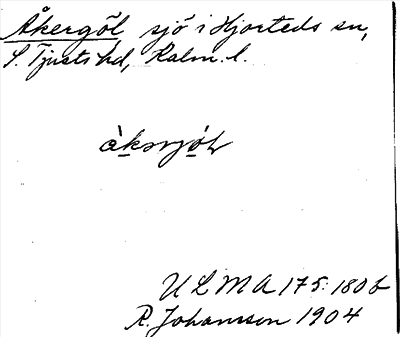 Åkergöl, sjö i Hjorteds sn,
S. Tjusts hd, Kalm. l.
U L M A 175:180 b
R. Johansson 1904